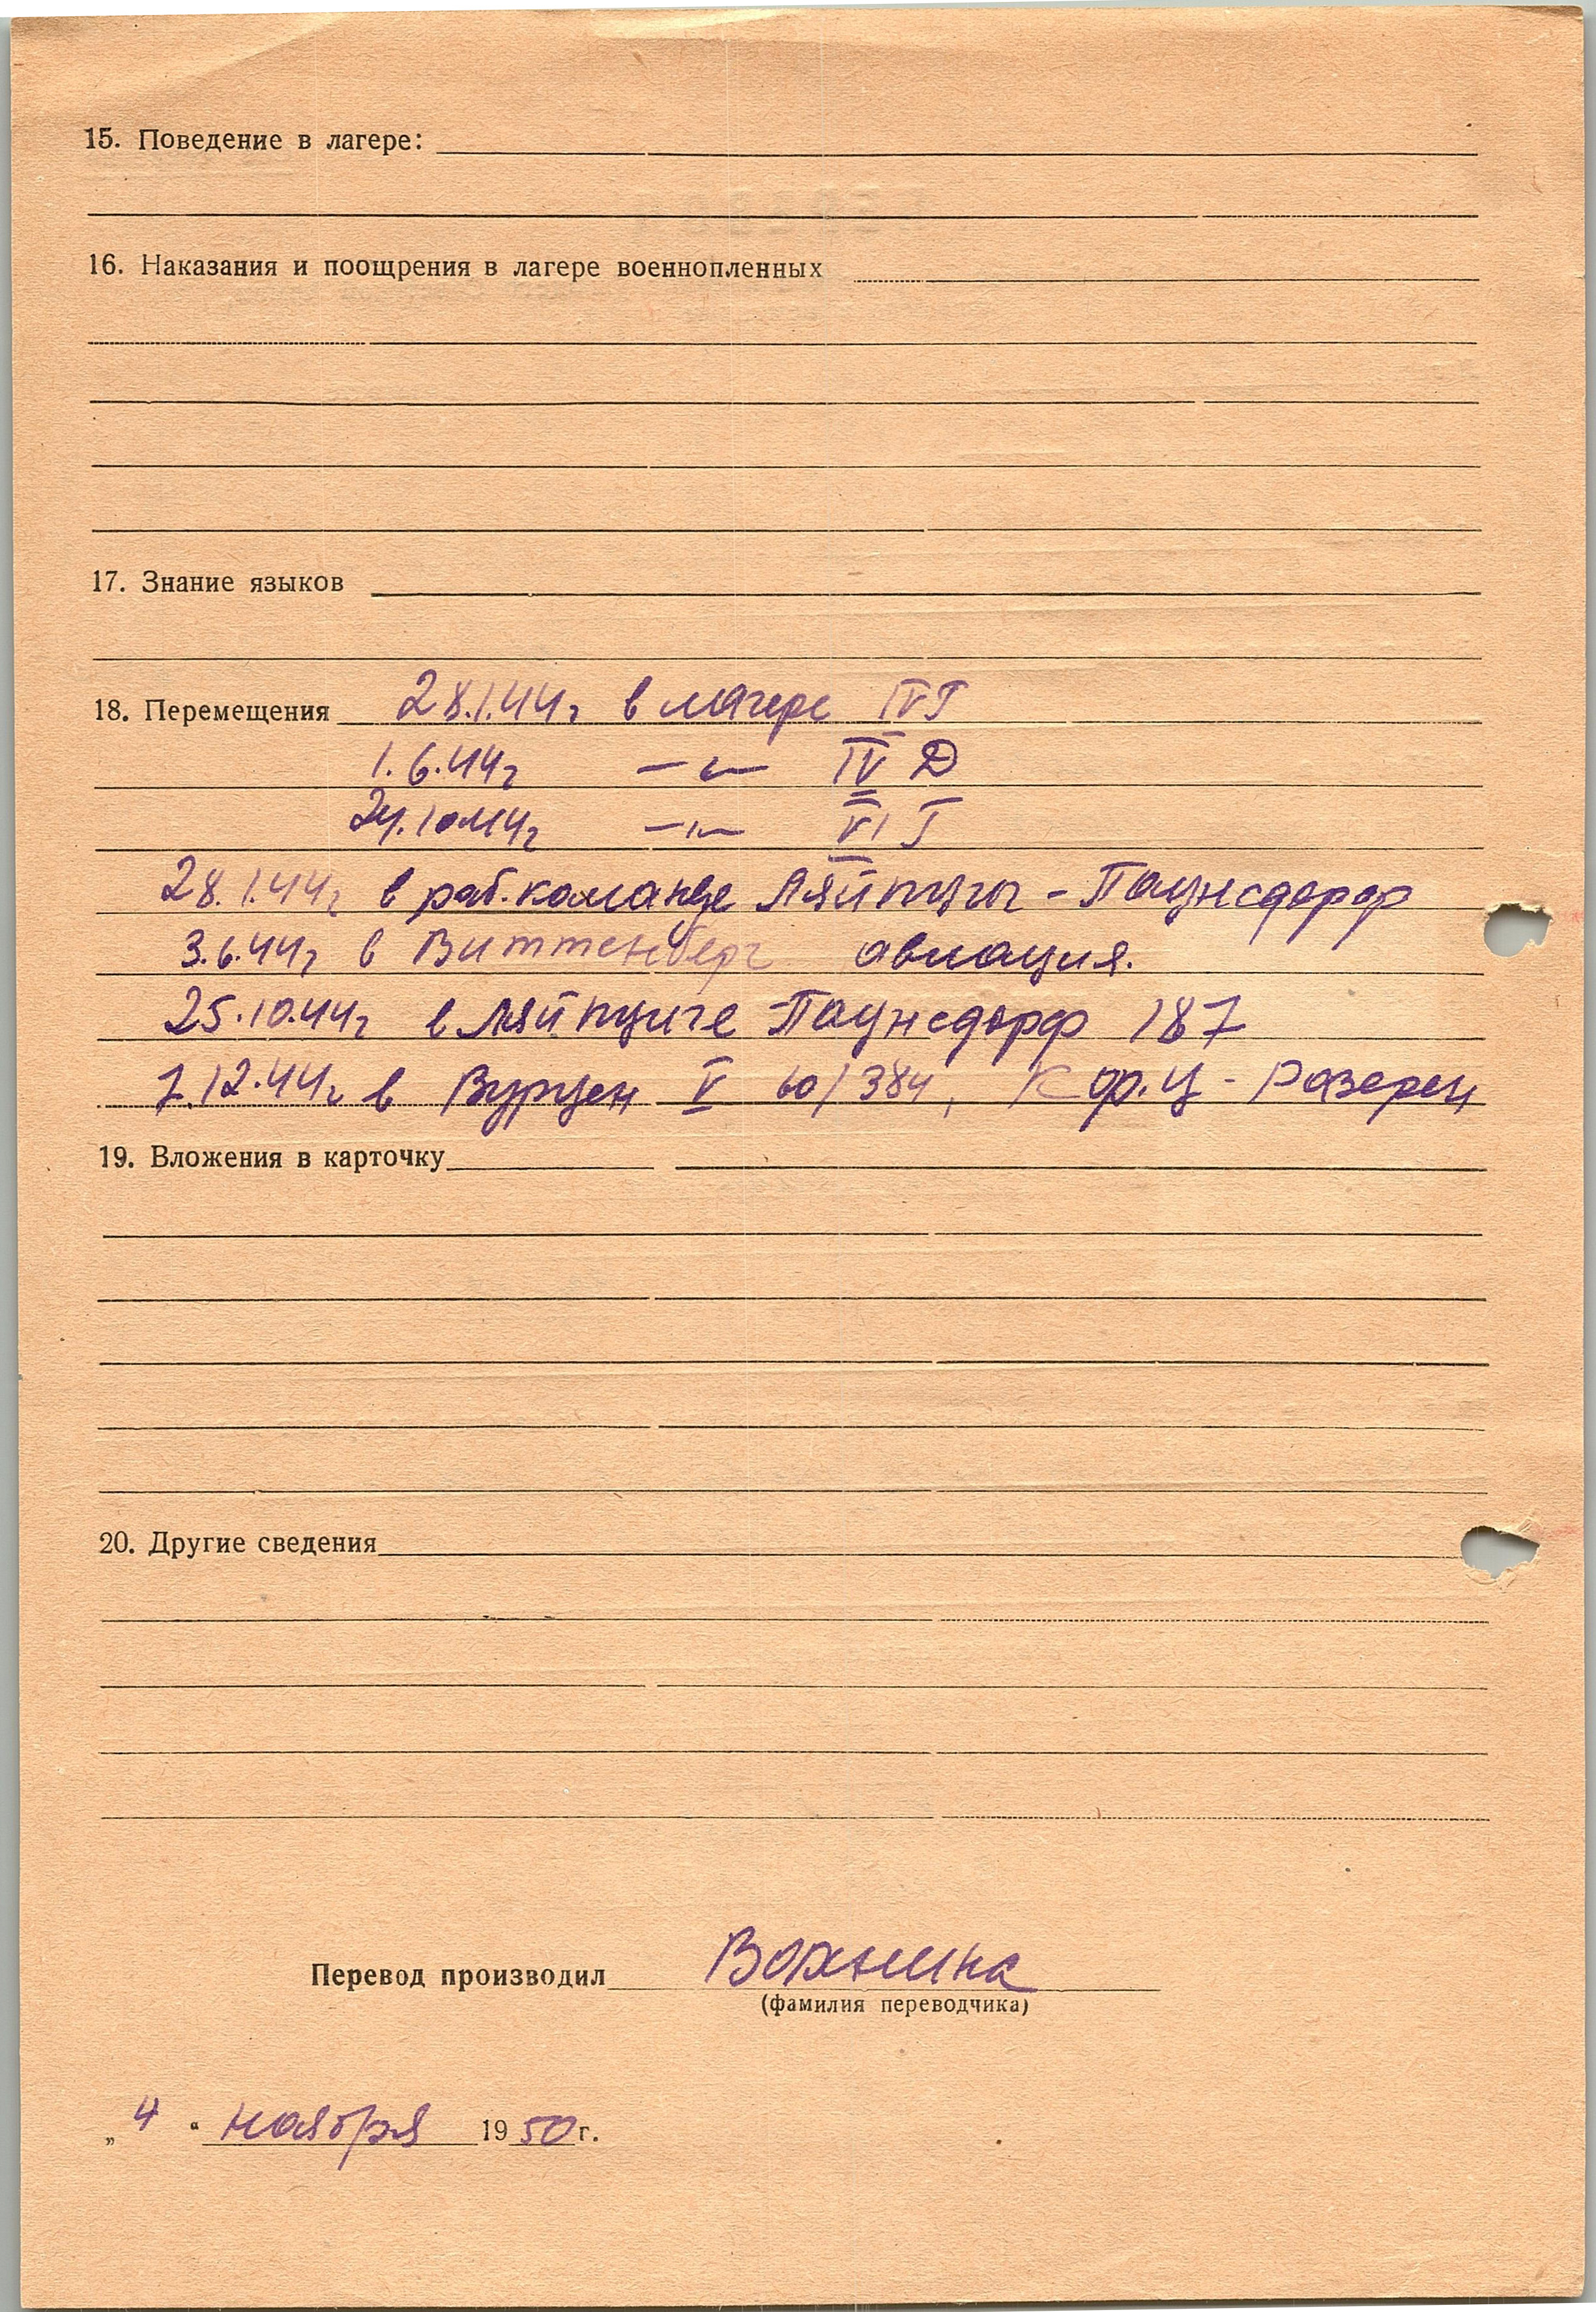 15. Поведение в лагере:
16. Наказания и поощрения в лагере военнопленных
17. Знание языков
18. Перемещения 28.1.44г в лагере IV Г
1.6.44г —"— IV Д
24.10.44г —"— VI Г
28.1.44г в раб.команде Ляйпциг - Паунсдорф
3.6.44г в Виттенберг авиация.
25.10.44г в Ляйпциге Паунсдорф 187
7.12.44г в Вурцен V 60/384,
19. Вложения в карточку
20. Другие сведения
Перевод производил
(фамилия переводчика)
„4“ ноября 1950г.